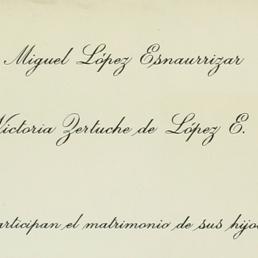 Miguel López Esnaurrizar
Victoria Zertuche de López E.
articipan el matrimonio de sus hijo